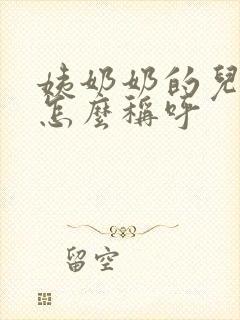 姨奶奶的兒
怎麼稱呼
留空